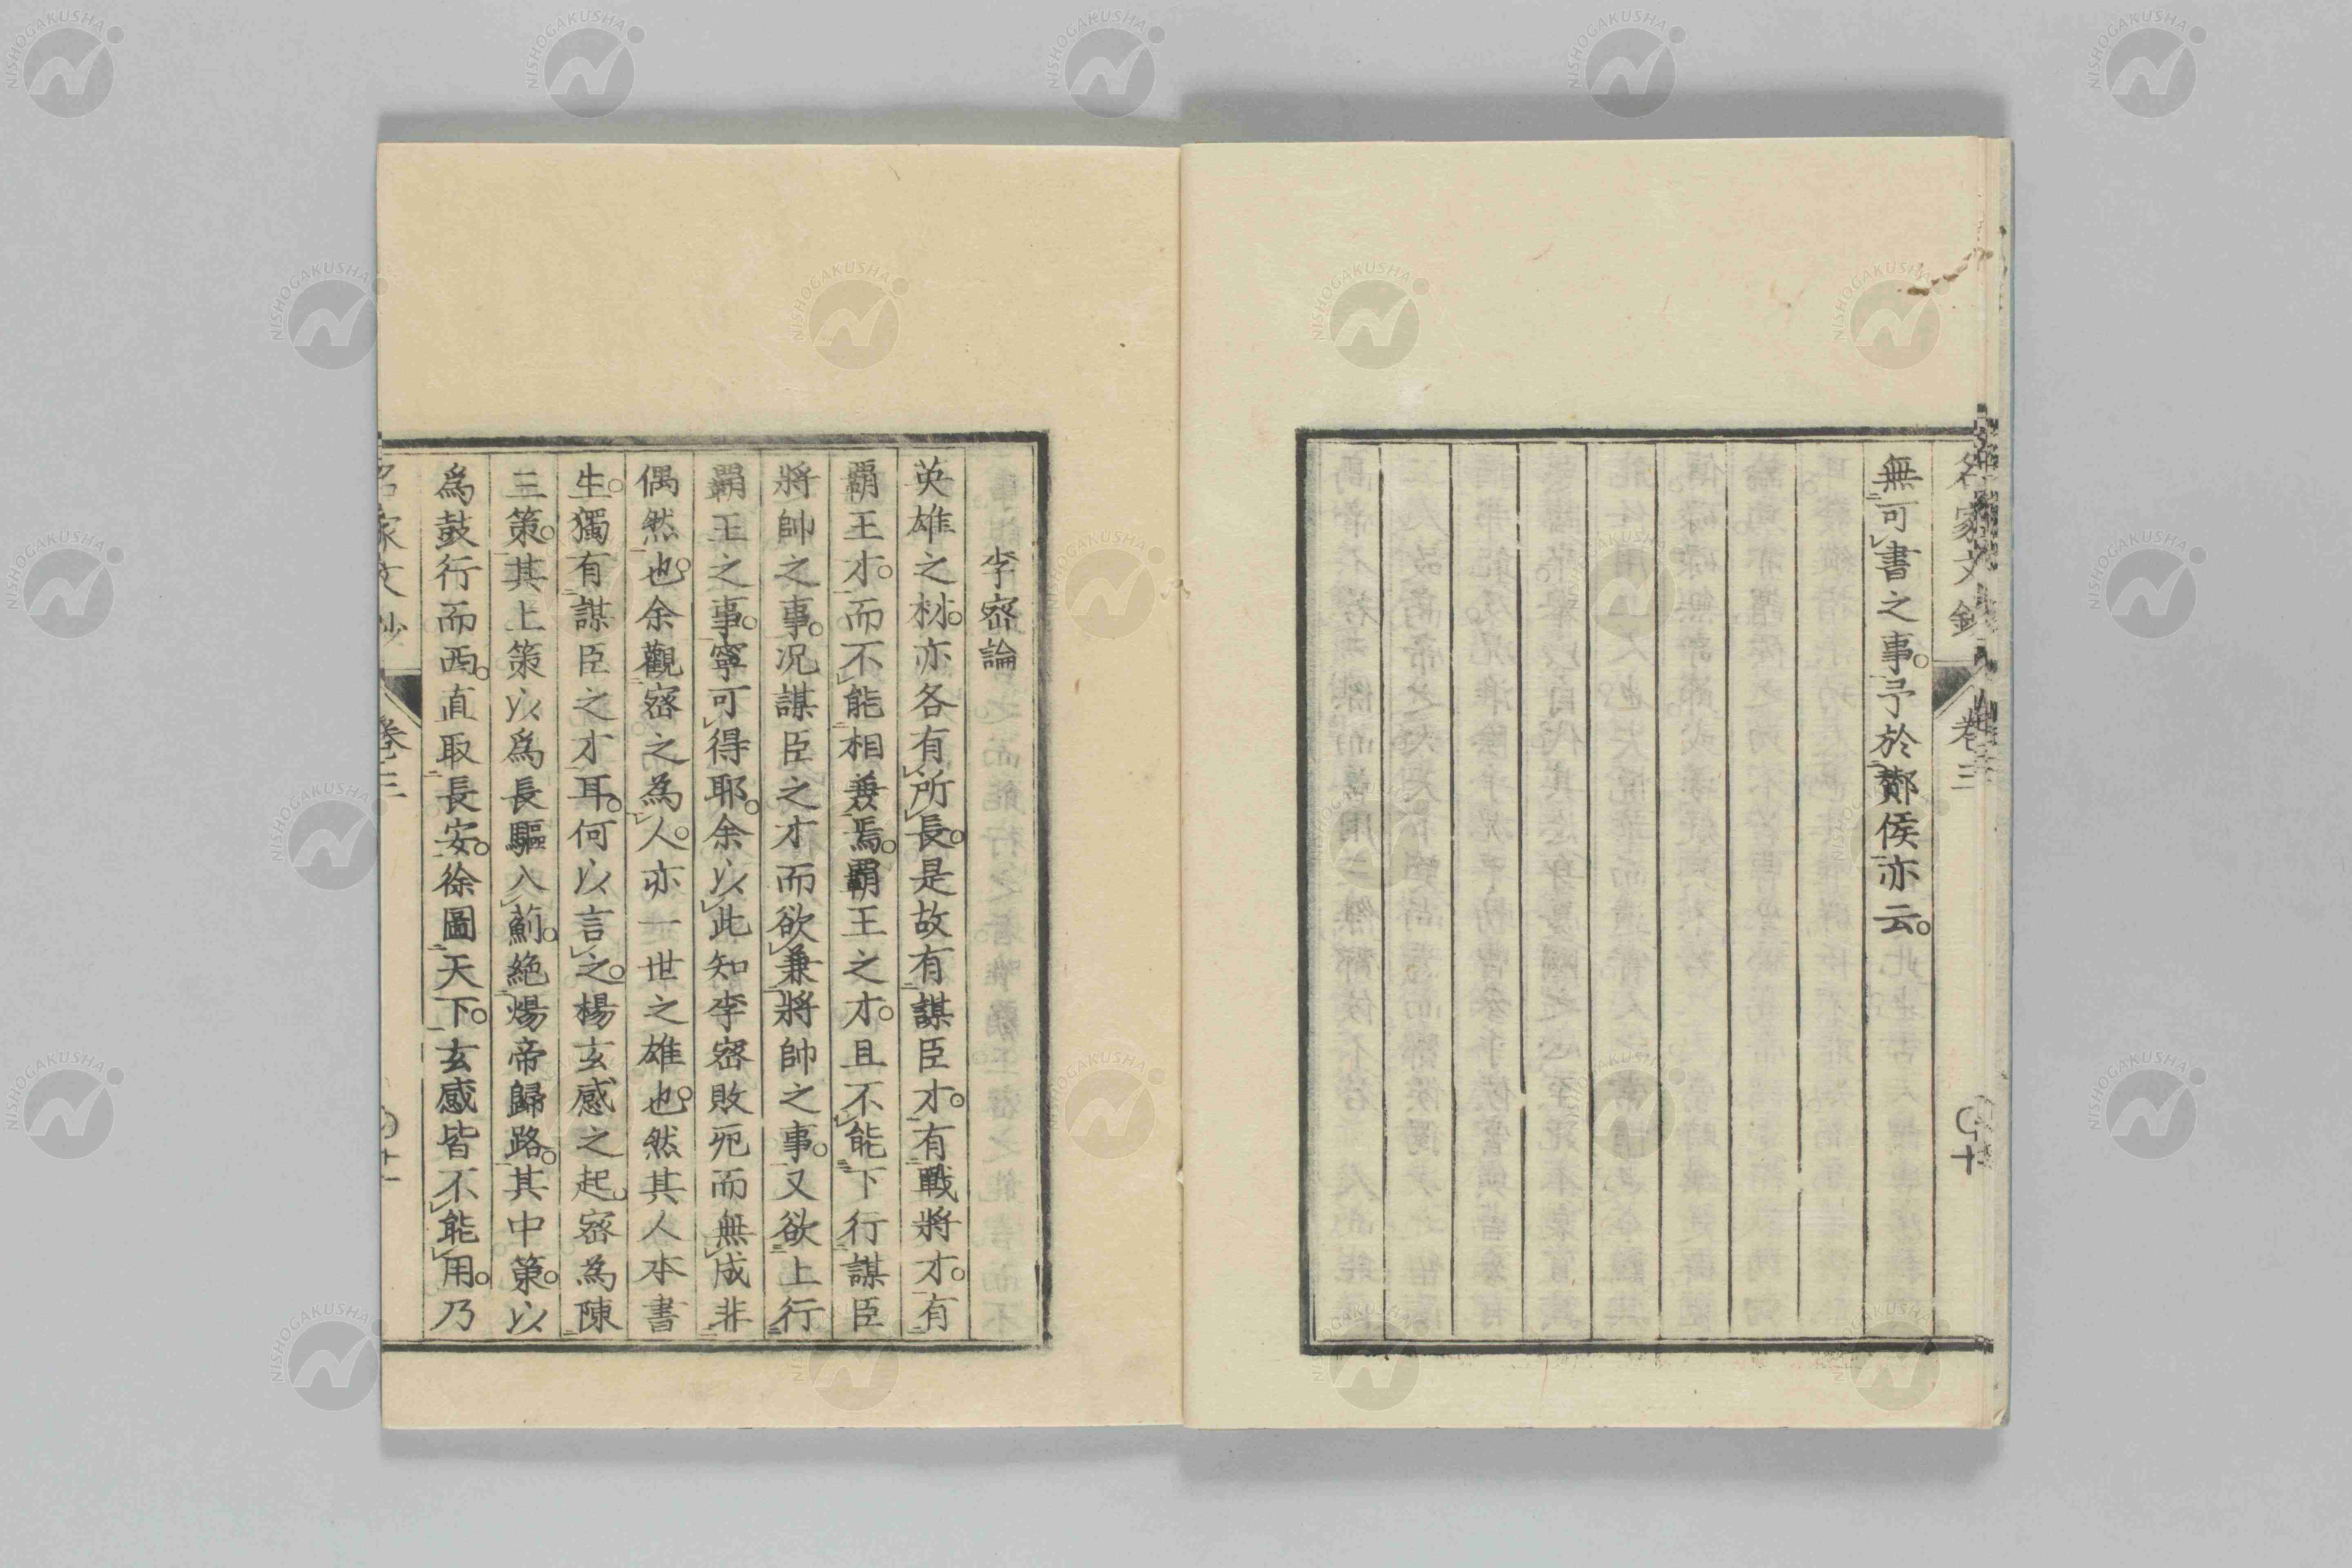 名家文鈔 卷三 十
無可書之事。予於酇侯亦云。
李宻論
英雄之材。亦各有所長。是故有謀臣才。有戰將才。有
霸王才。而不能相兼焉。霸王之才。且不能下行謀臣
將帥之事。況謀臣之才而欲兼將帥之事。又欲上行
霸王之事。寧可得耶。余以此知李宻敗死而無成非
偶然也。余觀宻之為人。亦一世之雄也。然其人本書
生。獨有謀臣之才耳。何以言之。楊玄感之起。宻為陳
三策。其上策以爲長驅入薊。絕煬帝歸路。其中策。以
爲鼓行而西。直取長安。徐圖天下。玄感皆不能用。乃
名家文鈔 卷三
NISHOGAKUSHA